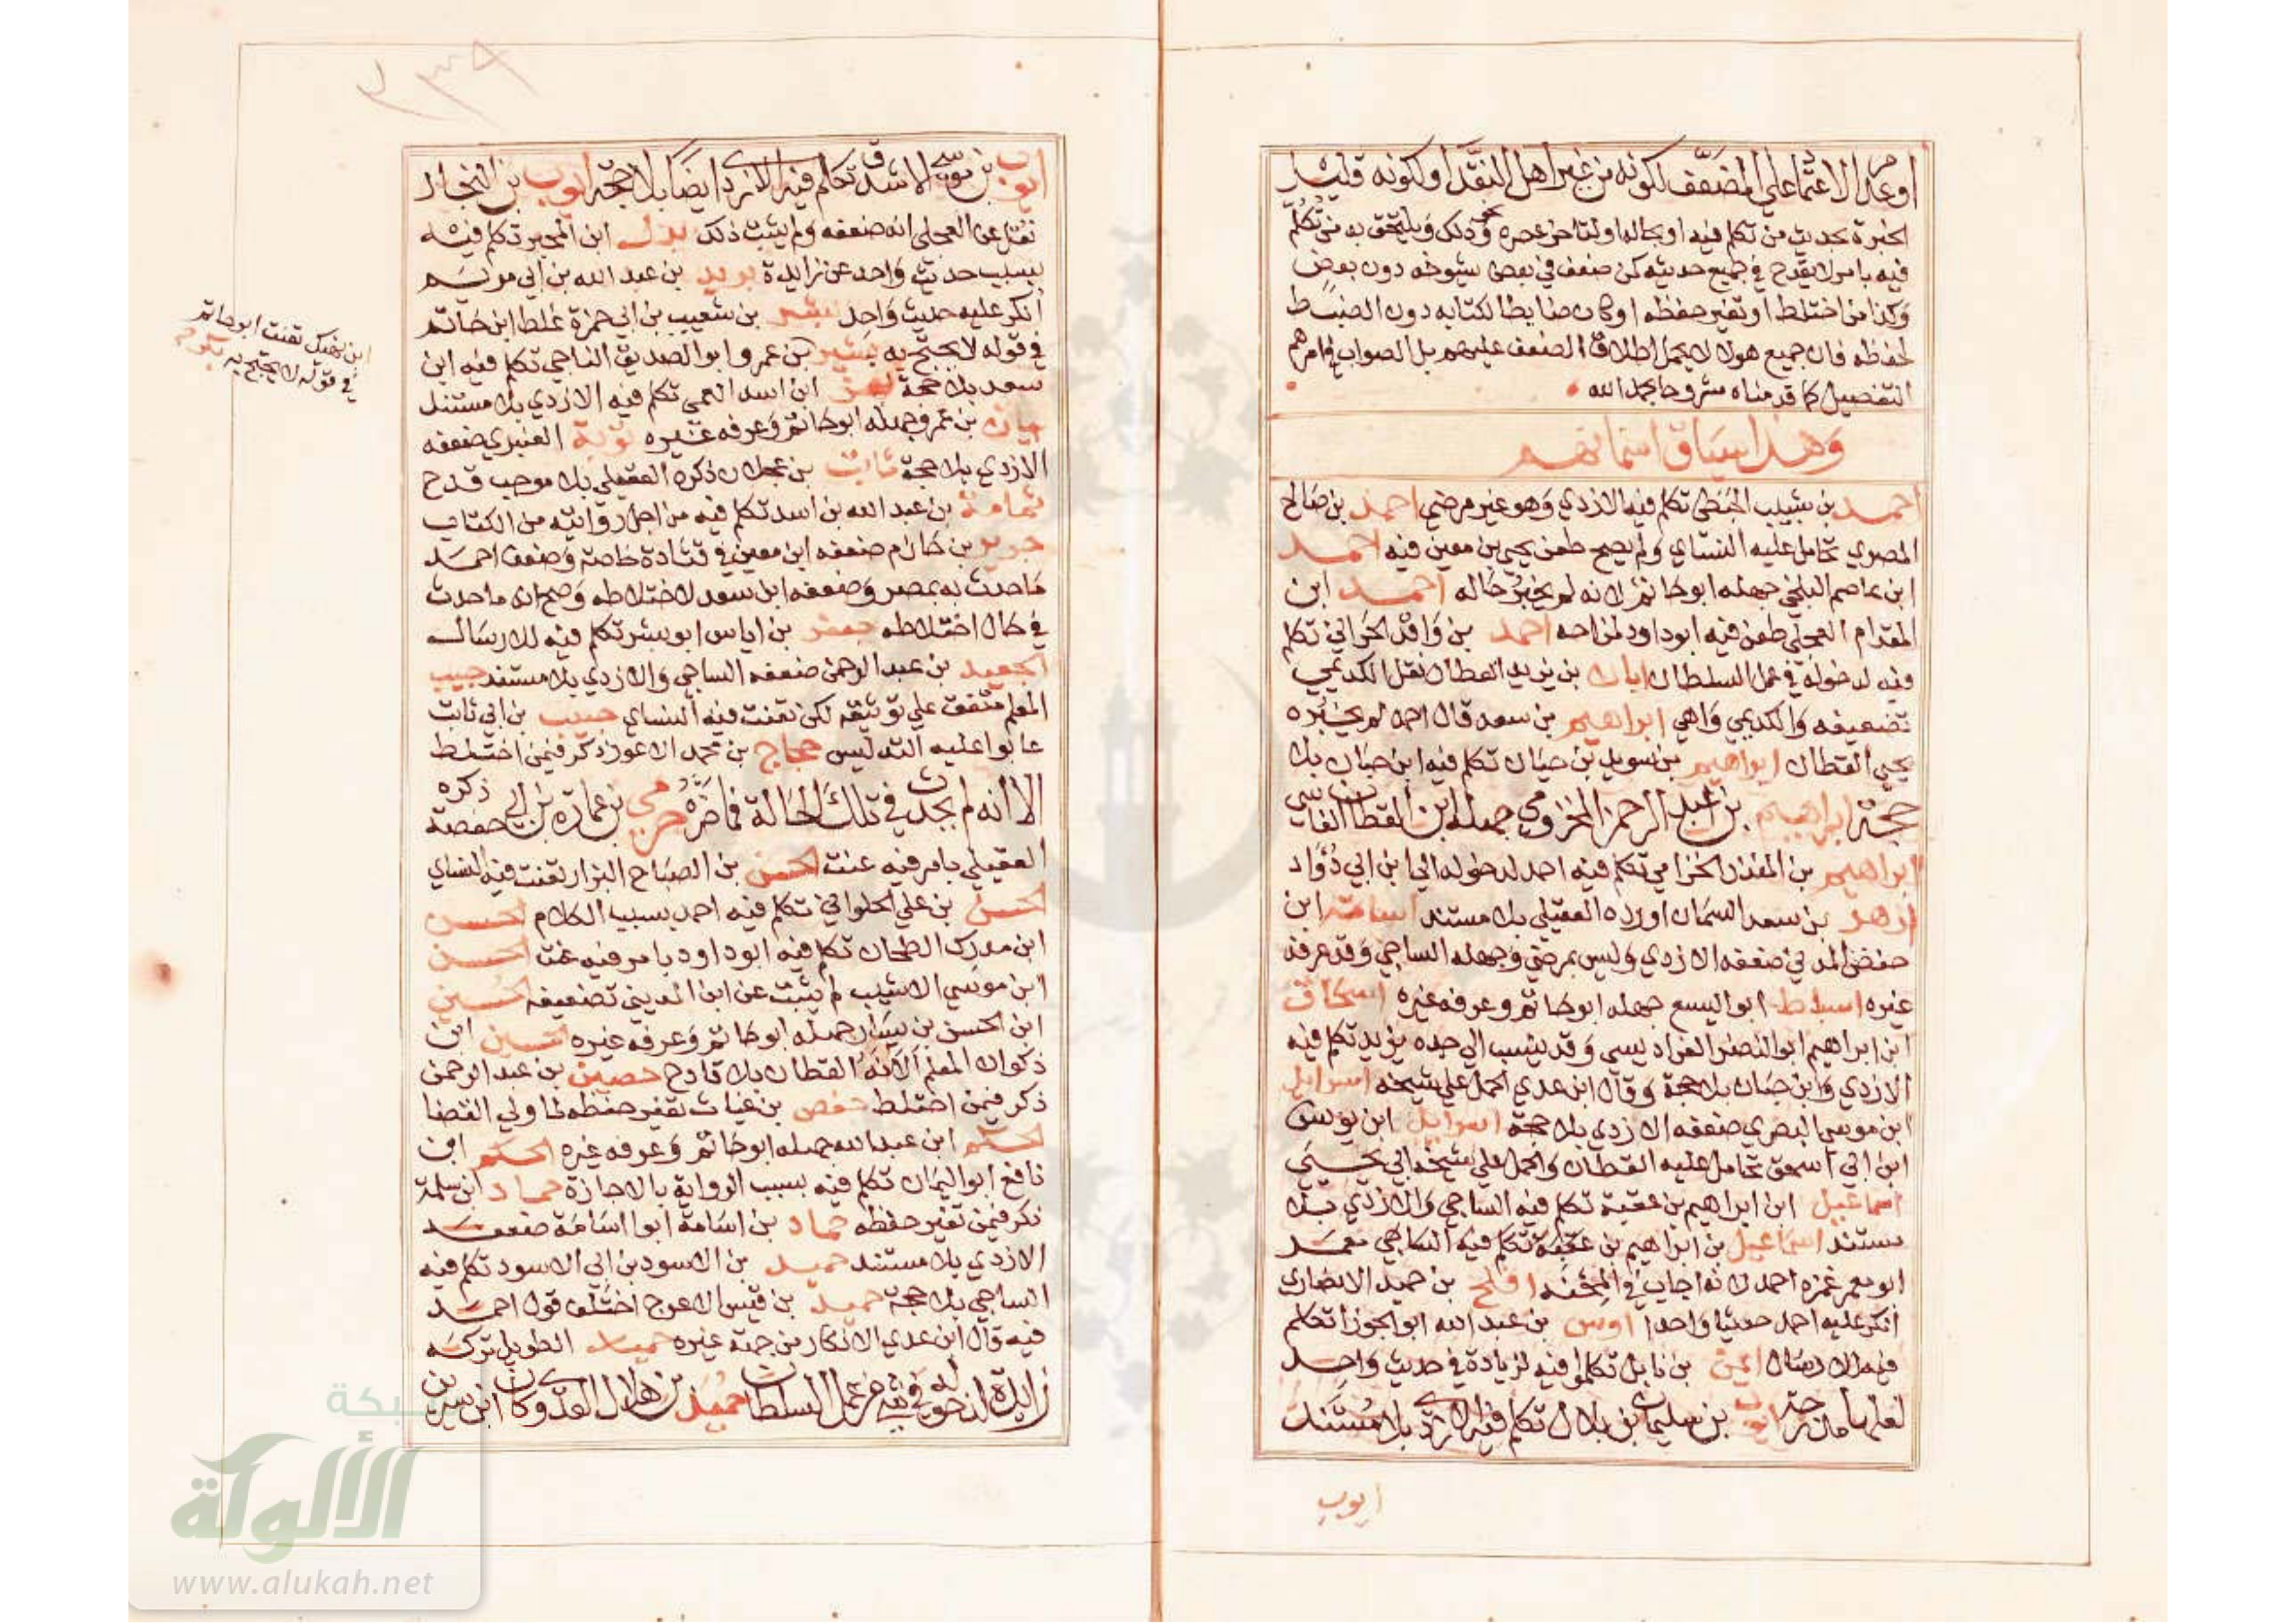 او عدم الاعتماد علي المضعف لكونه من غير اهل النقد او لكونه قليل
الخبرة بحديث من تكلم فيه او بحاله او لتاخر عصره ونحو ذلك ويلتحق به من تكلم
فيه بامر لا يقدح في جميع حديثه كمن ضعف في بعض شيوخه دون بعض
وكذا من اختلط او تغير حفظه او كان ضابطا لكتابه دون الضبط
لحفظه فان جميع هولا لا يجمل اطلاق الضعف عليهم بل الصواب في امرهم
التفصيل كما قدمناه مشروحا بحمد الله
وهذا سياق اسمائهم
احمد بن شبيب الحبطي تكلم فيه الازدي وهو غير مرضي احمد بن صالح
المصري تحامل عليه النساي ولم يصح طعن يحيي بن معين فيه احمد
ابن عاصم البلخي جهله ابو حاتم لانه لم يخبر حاله احمد ابن
المقدام العجلي طعن فيه ابو داود لمزاحه احمد بن واقد الحراني تكلم
فيه لدخوله في عمل السلطان ابان بن يزيد العطار نقل الكديمي
تضعيفه والكديمي واهي ابراهيم بن سعد قال احمد لم يخبره
يحيي القطان ابراهيم بن سويد بن حبان تكلم فيه ابن حبان بلا
حجة ابراهيم بن عبد الرحمن المخزومي جهله ابن القطان الفاسي
ابراهيم بن المنذر الحزامي تكلم فيه احمد لدخوله الي ابن ابي دؤاد
ازهر بن سعد السمان اورده العقيلي بلا مستند اسامة ابن
حفص المدني ضعفه الازدي وليس بمرضي وجهله الساجي وقد عرفه
غيره اسباط ابو اليسع جهله ابو حاتم وعرفه غيره اسحاق
ابن ابراهيم ابو النضر الفراديسي وقد ينسب الي جده يزيد تكلم فيه
الازدي وابن حبان بلا حجة وقال ابن عدي الحمل علي شيخه اسرايل
ابن موسي البصري ضعفه الازدي بلا حجة اسرايل ابن يونس
ابن ابي اسحق تحامل عليه القطان والحمل علي شيخه ابي يحيي
اسماعيل ابن ابراهيم بن عقبة تكلم فيه الساجي والازدي بلا
مستند اسماعيل بن ابراهيم بن تكلم فيه الساجي معمر
ابو معمر غمزه احمد لانه اجاب في المحنه افلح بن حميد الانصاري
انكر عليه احمد حديثا واحدا اوس بن عبد الله ابو الجوزا تكلم
فيه للارسال ايمن بن نابل تكلموا فيه لزيادة في حديث واحد
ايوب بن سليمان بن بلال تكلم فيه الازدي بلا مستند
ايوب
ايوب بن موسي الاشدق تكلم فيه الازدي ايضا بلا حجة ايوب بن النجار
نقل عن العجلي انه ضعفه ولم يثبت ذلك بدل ابن المحبر تكلم فيه
بسبب حديث واحد عن زايدة بريد بن عبد الله بن ابي موسي
انكر عليه حديث واحد بشر بن شعيب بن ابي حمزة غلط ابن حاتم
في قوله لا يحتج به بشير بن عمرو ابو الصديق الناجي تكلم فيه ابن
سعد بلا حجة بهز ابن اسد العمي تكلم فيه الازدي بلا مستند
بيان بن عمرو جهله ابو حاتم وعرفه غيره توبة العنبري ضعفه
الازدي بلا حجة ثابت بن عجلان ذكره العقيلي بلا موجب قدح
ثمامة بن عبد الله بن اسد تكلم فيه من اجل روايته من الكتاب
جرير بن حازم ضعفه ابن معين في قتادة خاصة وضعف احمد
ما حدث به بمصر وضعفه ابن سعد لاختلاطه وصح انه ما حدث
في حال اختلاطه جعفر بن اياس ابو بشر تكلم فيه للارسال
الجعيد بن عبد الرحمن ضعفه الساجي والازدي بلا مستند حبيب
المعلم متفق علي توثيقه لكن تعنت فيه النساي حبيب بن ابي ثابت
عابوا عليه التدليس حجاج بن محمد الاعور ذكر فيمن اختلط
الا انه لم يحدث في تلك الحالة فما ضره حرمي بن عمارة بن ابي حفصة ذكره
العقيلي بامر فيه عنت الحسن بن الصباح البزار تعنت فيه النساي
الحسن بن علي الحلواني تكلم فيه احمد بسبب الكلام الحسن
ابن مدرك الطحان تكلم فيه ابو داود بامر فيه عنت الحسن
ابن موسي الاشيب لم يثبت عن ابن المديني تضعيفه الحسين
ابن الحسن بن يسار جهله ابو حاتم وعرفه غيره الحسين ابن
ذكوان المعلم القطان بلا قادح حصين بن عبد الرحمن
ذكر فيمن اختلط حفص بن غياث تغير حفظه لما ولي القضا
الحكم ابن عبد الله جهله ابو حاتم وعرفه غيره الحكم ابن
نافع ابو اليمان تكلم فيه بسبب الرواية بالاجازة حماد ابن سلمة
ذكر فيمن تغير حفظه حماد بن اسامة ابو اسامة ضعفه
الازدي بلا مستند حميد بن الاسود بن ابي الاسود تكلم فيه
الساجي بلا حجة حميد بن قيس الاعرج اختلف قول احمد
فيه قال ابن عدي الانكار من جهة غيره حميد الطويل تركه
زايدة لدخوله في شي من عمل السلطان حميد بن هلال العدوي كان ابن سيرين
ابن نهيك تعنت ابو حاتم
في قوله لا يحتج به
شبكة
الألوكة
www.alukah.net